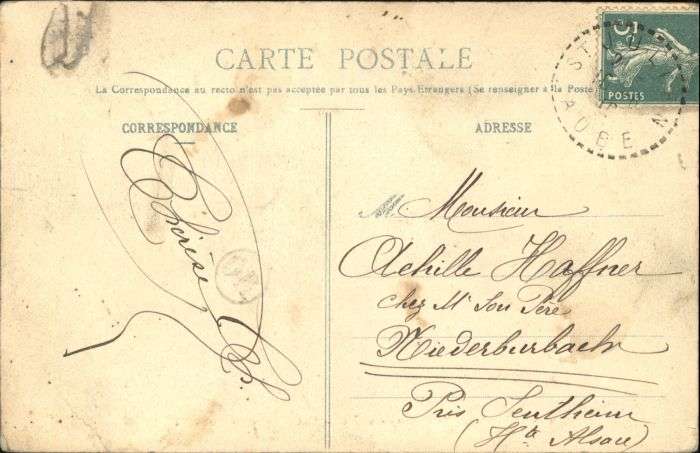 CARTE POSTALE
La Correspondance au recto n'est pas acceptée par tous les Pays Etrangers (Se renseigner à la Poste
CORRESPONDANCE
ADRESSE
5
POSTES
ST JUL
AUBE
Thérèse
M. Monsieur
Achille Haffner
chez Mr Son Père
Niederburbach
Près Sentheim
(Hte Alsace)